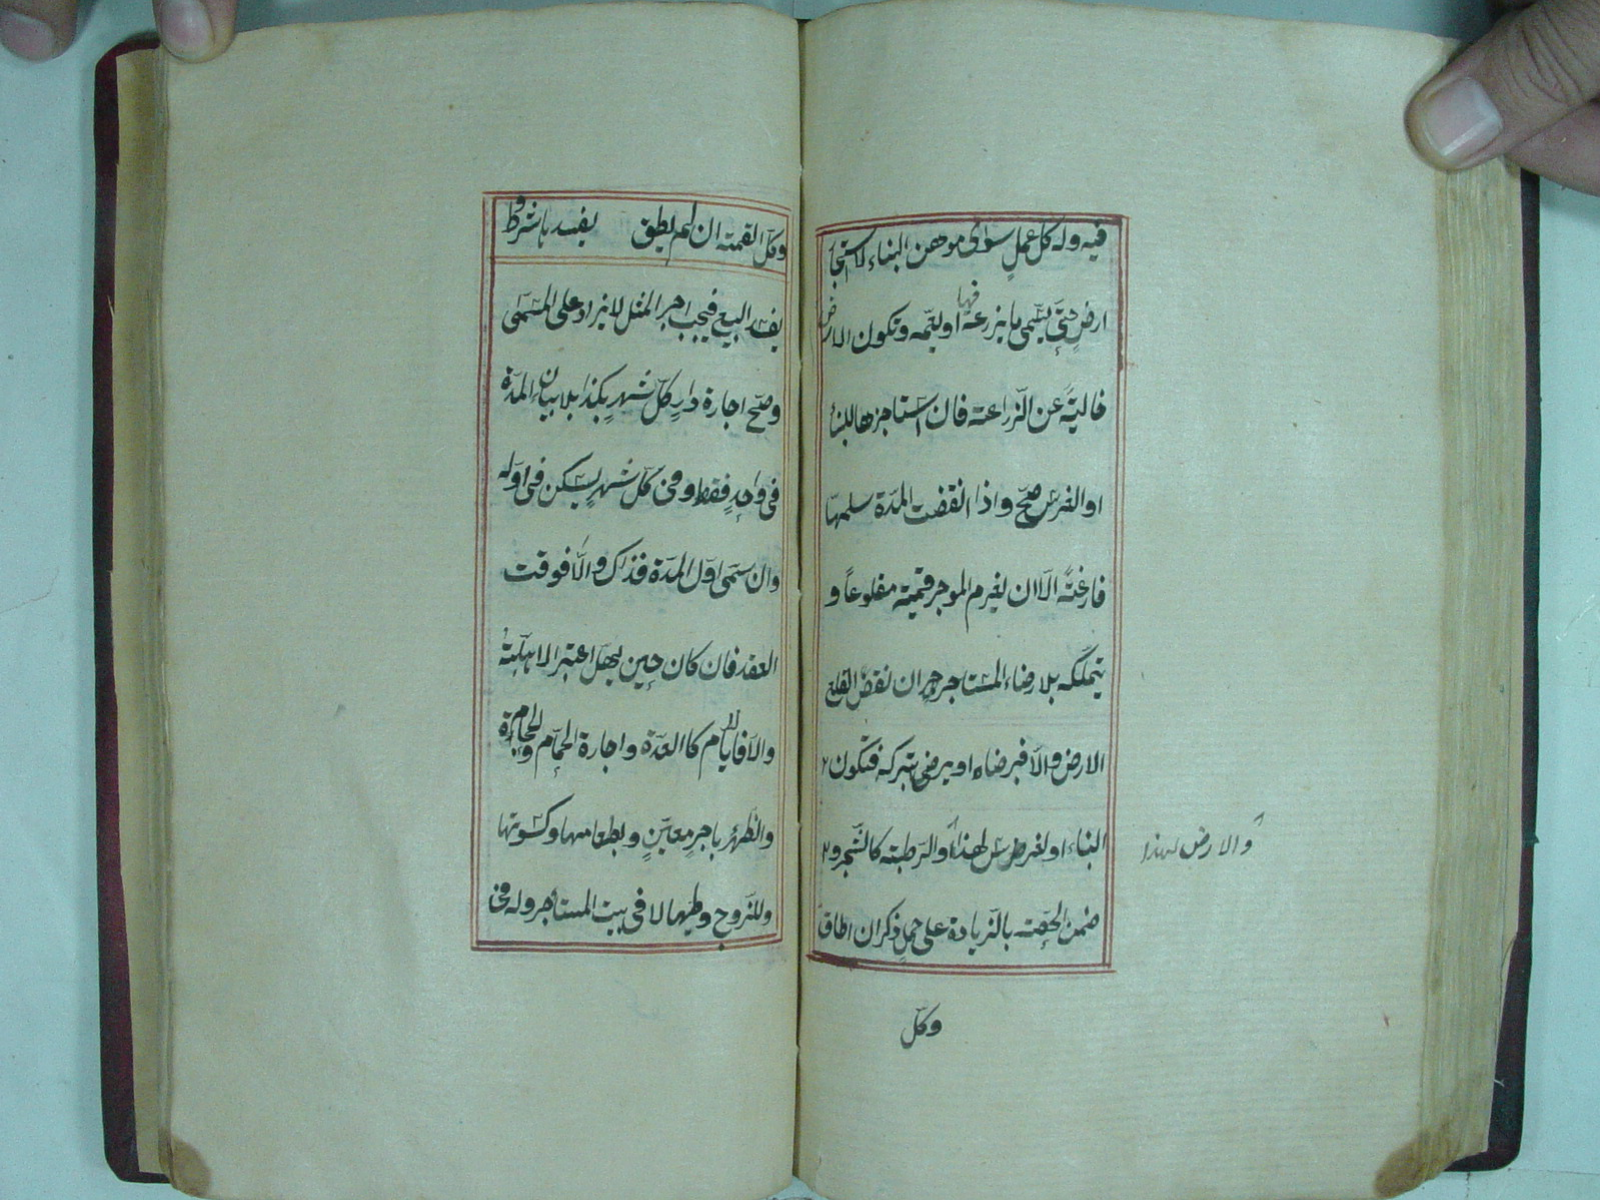 فيه وله كل عمل سوى موهن البناء كاستجار
ارض حتى يسمى ما يزرعه فيها او يعمه وتكون الارض
خالية عن الزراعة فان استاجرها للبناء
او الغرس صح واذا انقضت المدة سلمها
فارغة الا ان يغرم الموجر قيمته مقلوعاً و
يتملكه بلا رضاء المستاجر جبر ان نقص القلع
الارض والا فبرضاه او يرضى بتركه فتكون
البناء او لغرض س لهذا والرطبة كالشجر و
والارض لهذا
ضمن الحصة بالزيادة على حمل ذكر ان اطاق
وكل
وكل القيمة ان لم يطق يفسد بالشروط
يفسد البيع فيجب اجر المثل لا يزاد على المسمى
وصح اجارة دار كل شهر بكذا بلا بيان المدة
فى واحد فقط وفى كل شهر يسكن فى اوله
وان سمى اول المدة فذاك والا فوقت
العقد فان كان حين يهل اعتبر الاهلة
والا فالايام كالعدة واجارة الحمام والحجامة
والظئر باجر معين وبطعامها وكسوتها
وللزوج وطيها لا فى بيت المستأجر وله فى